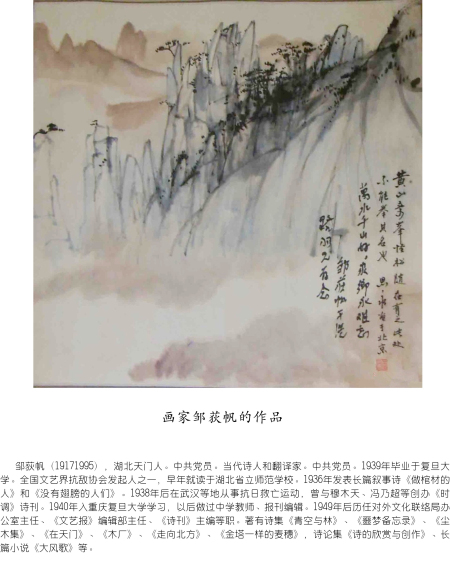 黄山奇峯怪松随处有之此处
不能举其名
萬水千山
邹荻帆
画家邹荻帆的作品
邹荻帆（19171995），湖北天门人。中共党员。当代诗人和翻译家。中共党员。1939年毕业于复旦大
学。全国文艺界抗敌协会发起人之一，早年就读于湖北省立师范学校。1936年发表长篇叙事诗《做棺材的
人》和《没有翅膀的人们》。1938年后在武汉等地从事抗日救亡运动，曾与穆木天、冯乃超等创办《时
调》诗刊。1940年入重庆复旦大学学习，以后做过中学教师、报刊编辑。1949年后历任对外文化联络局办
公室主任、《文艺报》编辑部主任、《诗刊》主编等职。著有诗集《青空与林》、《噩梦备忘录》、《尘
木集》、《在天门》、《木厂》、《走向北方》、《金塔一样的麦穗》，诗论集《诗的欣赏与创作》、长
篇小说《大风歌》等。